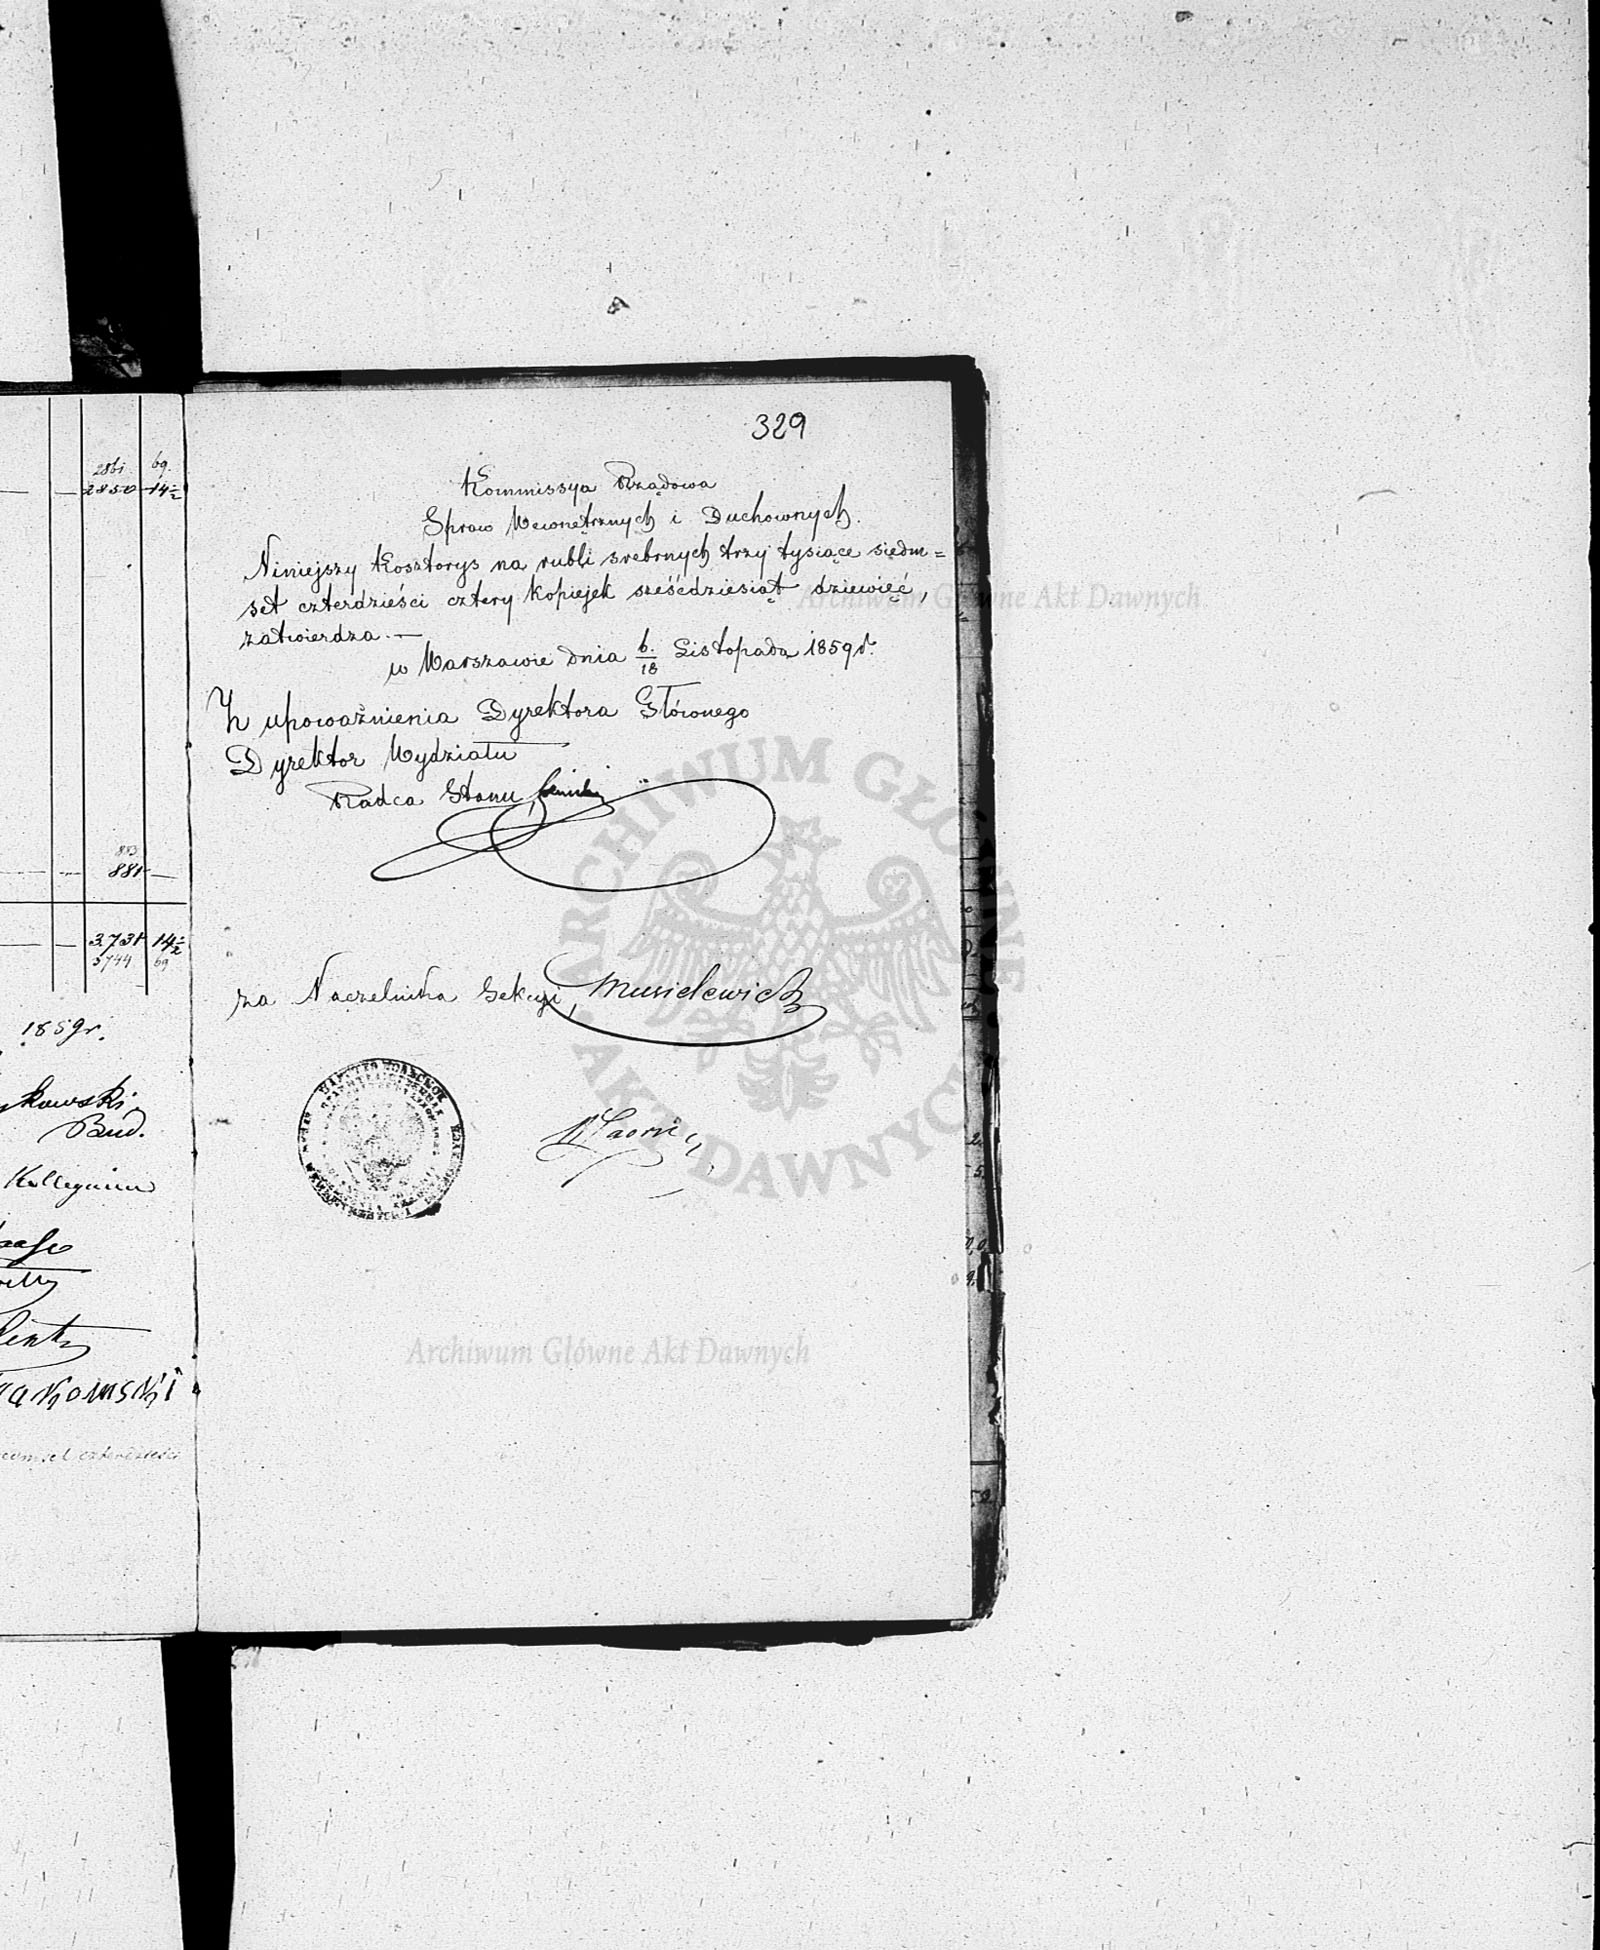 2861 69.
2850 14½
883
881
3,731 14½
3744 69
1859r.
kowski
Bud.
329
Kommissya Rządowa
Spraw Wewnętrznych i Duchownych.
Niniejszy Kosztorys na rubli srebrnych trzy tysiące siedm=
set czterdzieści cztery kopiejek sześćdziesiąt dziewięć,
zatwierdza.—
w Warszawie dnia 6/18 Listopada 1859 r.
Z upoważnienia Dyrektora Głównego
Dyrektor Wydziału
Radca Stanu,
za Naczelnika Sekcyi, Musielewicz
Archiwum Główne Akt Dawnych
ARCHIWUM GŁÓWNE AKT DAWNYCH
Archiwum Główne Akt Dawnych